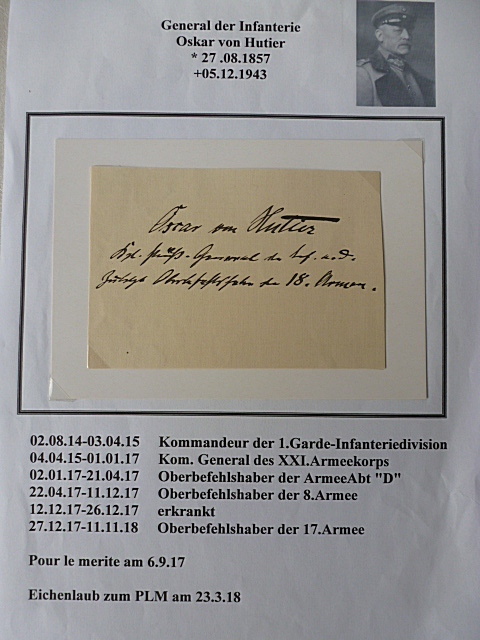 General der Infanterie
Oskar von Hutier
* 27 .08.1857
+05.12.1943
Oscar von Hutier
Kgl. Preuß. General der Inf. a. D.
Zuletzt Oberbefehlshaber der 18. Armee.
02.08.14-03.04.15 Kommandeur der 1.Garde-Infanteriedivision
04.04.15-01.01.17 Kom. General des XXI.Armeekorps
02.01.17-21.04.17 Oberbefehlshaber der ArmeeAbt "D"
22.04.17-11.12.17 Oberbefehlshaber der 8.Armee
12.12.17-26.12.17 erkrankt
27.12.17-11.11.18 Oberbefehlshaber der 17.Armee
Pour le merite am 6.9.17
Eichenlaub zum PLM am 23.3.18